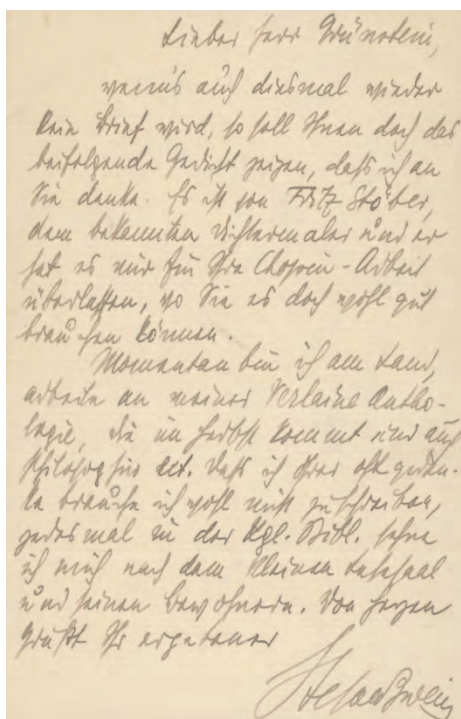 Lieber Herr Grünstein,
wenn's auch diesmal wieder
kein Brief wird, so soll Ihnen doch das
beifolgende Gedicht zeigen, daſs ich an
Sie denke. Es ist von Fritz Stöber,
dem bekannten Dichtermaler und er
hat es mir für Ihre Chopin-Arbeit
überlassen, wo Sie es doch wohl gut
brauchen können.
Momentan bin ich am Land,
arbeite an meiner Verlaine Antho-
logie, die im Herbst kommt und auch
Philosophie ect. Daſs ich Ihrer oft geden-
ke brauche ich wohl nicht zu schreiben,
jedesmal in der Kgl. Bibl. sehne
ich mich nach dem kleinen Lesesaal
und seinen Bewohnern. Von Herzen
grüßt Ihr ergebener
Stefan Zweig